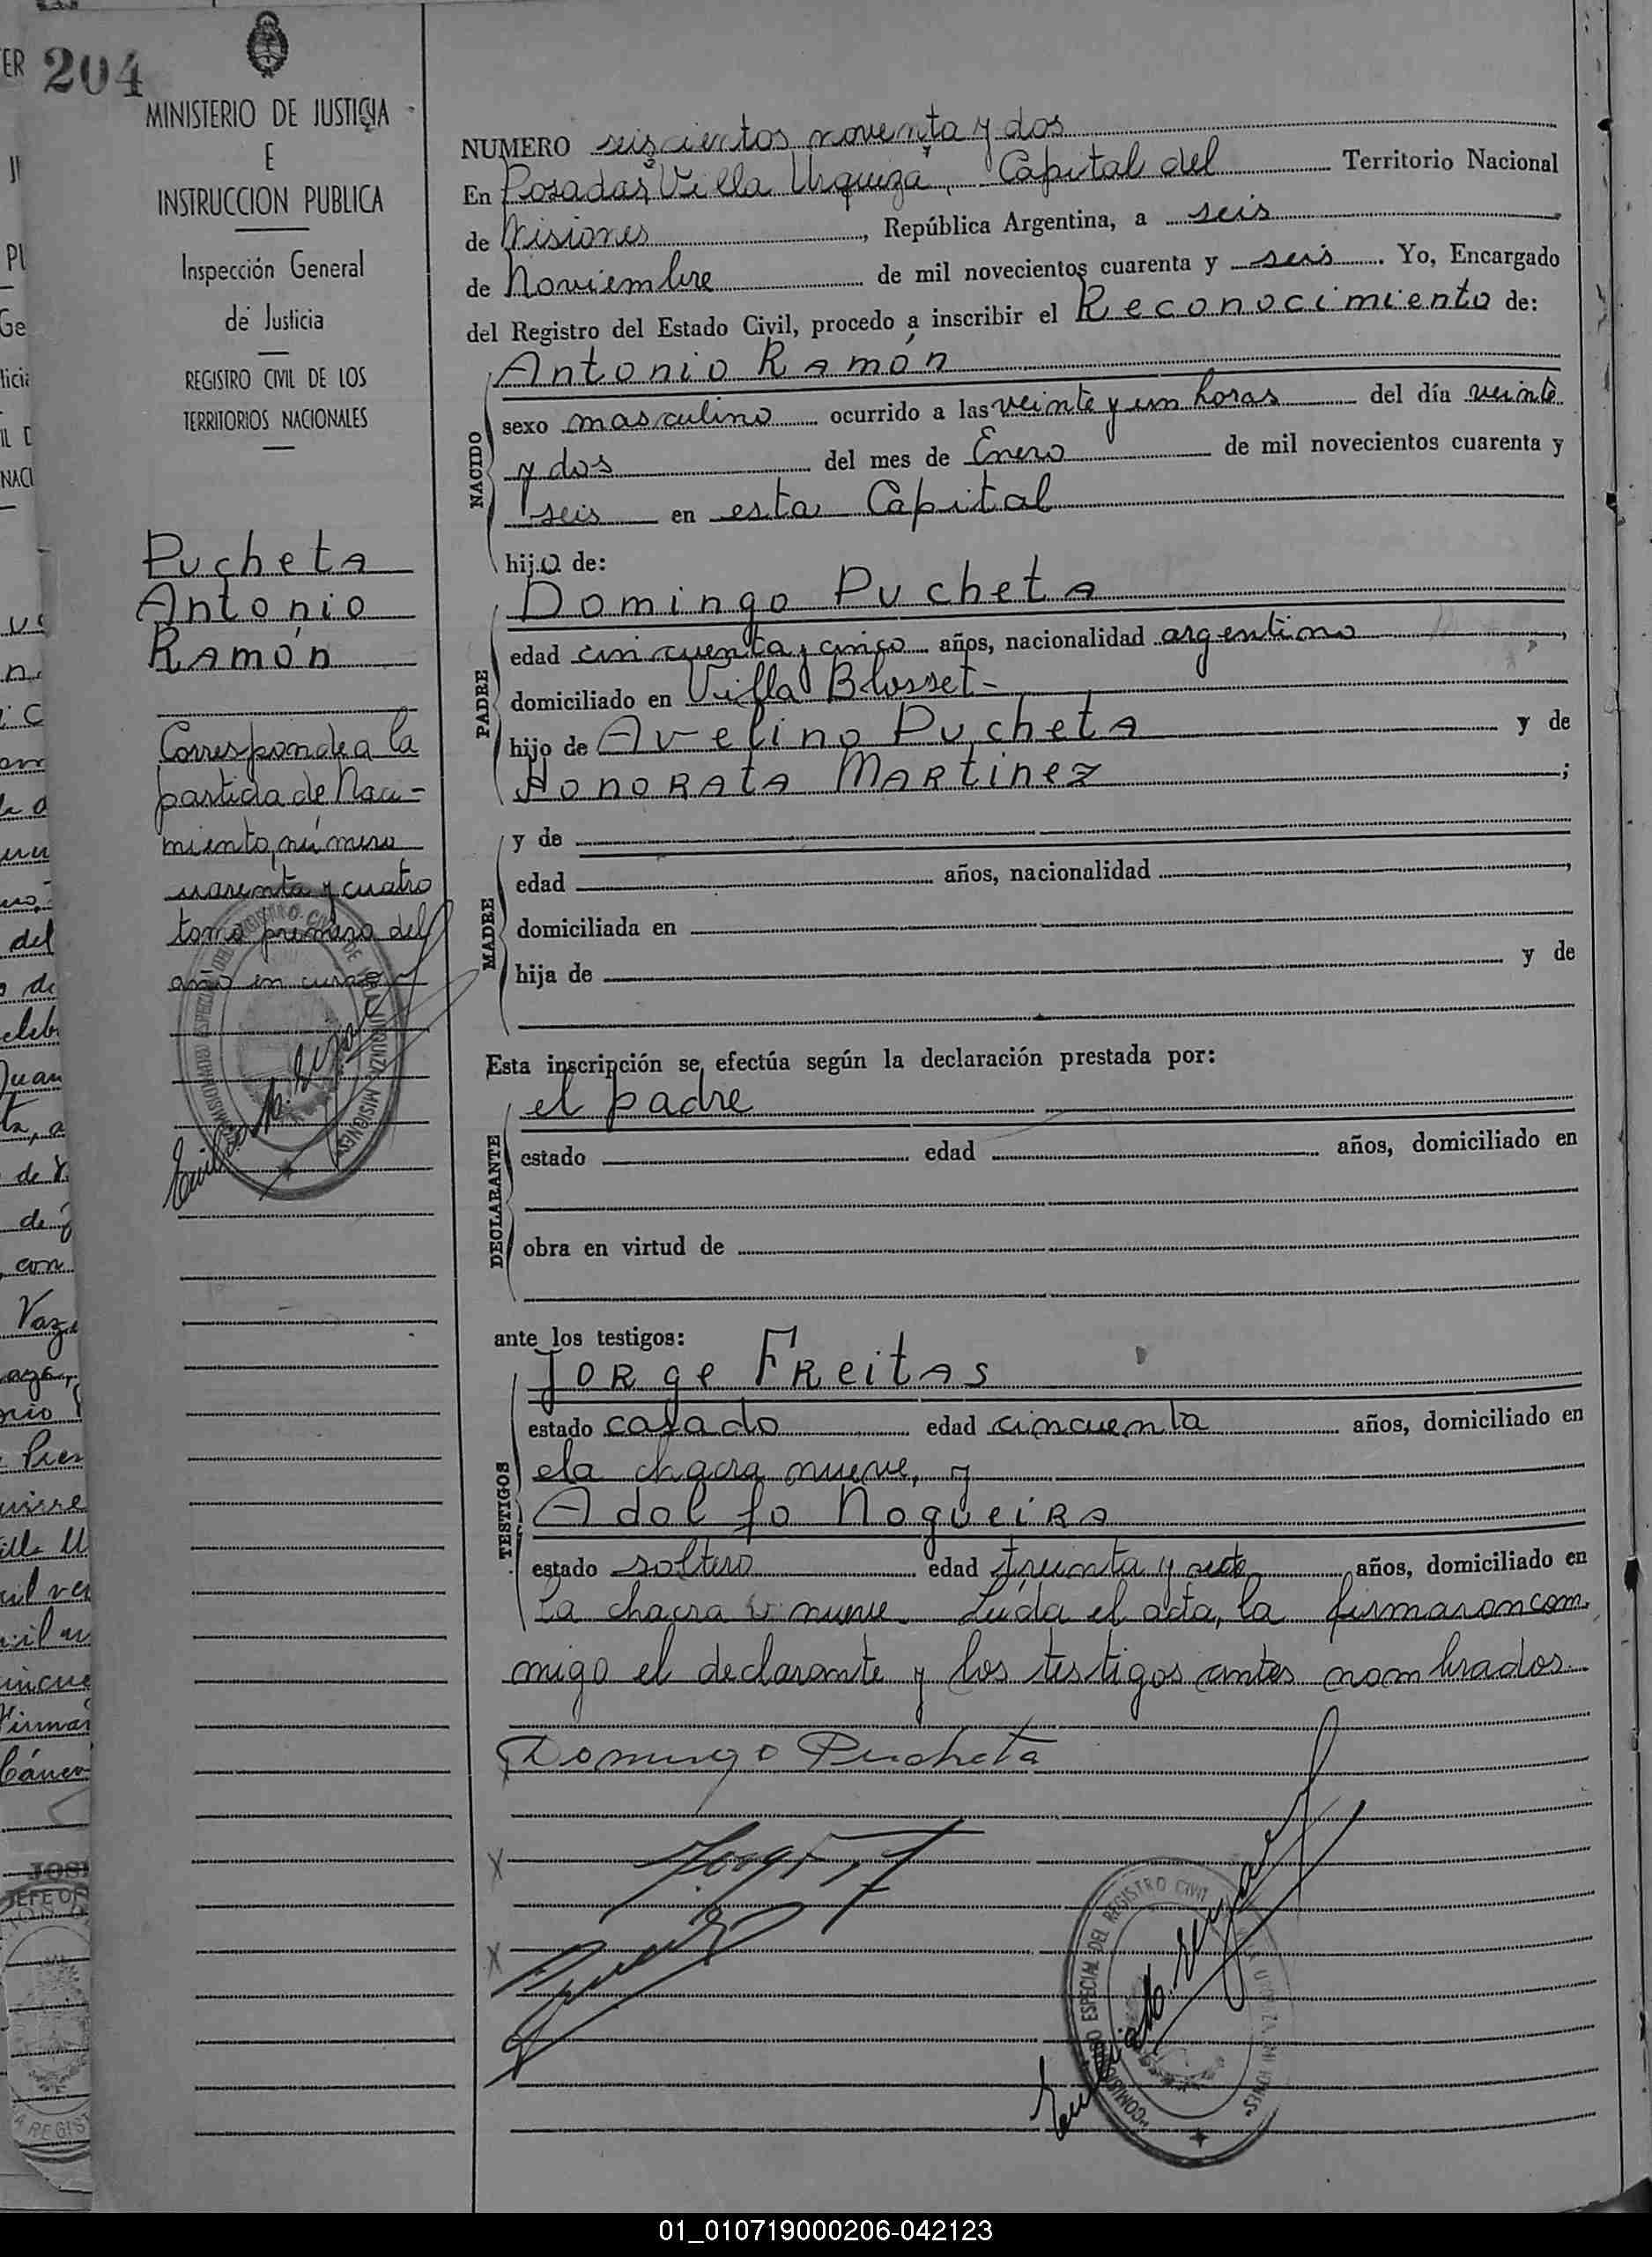 204
MINISTERIO DE JUSTICIA
E
INSTRUCCION PUBLICA
Inspección General
de Justicia
REGISTRO CIVIL DE LOS
TERRITORIOS NACIONALES
Pucheta
Antonio
Ramón
Corresponde a la
partida de Naci-
miento, número
cuarenta y cuatro
tomo primero del
año en curso
NUMERO seiscientos noventa y dos
En Posadas, Villa Urquiza, Capital del Territorio Nacional
de Misiones, República Argentina, a seis
de Noviembre de mil novecientos cuarenta y seis. Yo, Encargado
del Registro del Estado Civil, procedo a inscribir el Reconocimiento de:
Antonio Ramón
NACIDO
sexo masculino ocurrido a las veinte y un horas del día veinte
y dos del mes de Enero de mil novecientos cuarenta y
seis en esta Capital
hijo de:
Domingo Pucheta
PADRE
edad cincuenta y cinco años, nacionalidad argentino,
domiciliado en Villa Blosset-
hijo de Avelino Pucheta y de
Honorata Martinez;
MADRE
y de
edad años, nacionalidad,
domiciliada en
hija de y de
Esta inscripción se efectúa según la declaración prestada por:
el padre
DECLARANTE
estado edad años, domiciliado en
obra en virtud de
ante los testigos:
Jorge Freitas
TESTIGOS
estado casado edad cincuenta años, domiciliado en
ela chacra nueve, y
Adolfo Nogueira
estado soltero edad treinta y siete años, domiciliado en
la chacra nueve. Leída el acta, la firmaron con-
migo el declarante y los testigos antes nombrados.
Domingo Pucheta
01_010719000206-042123